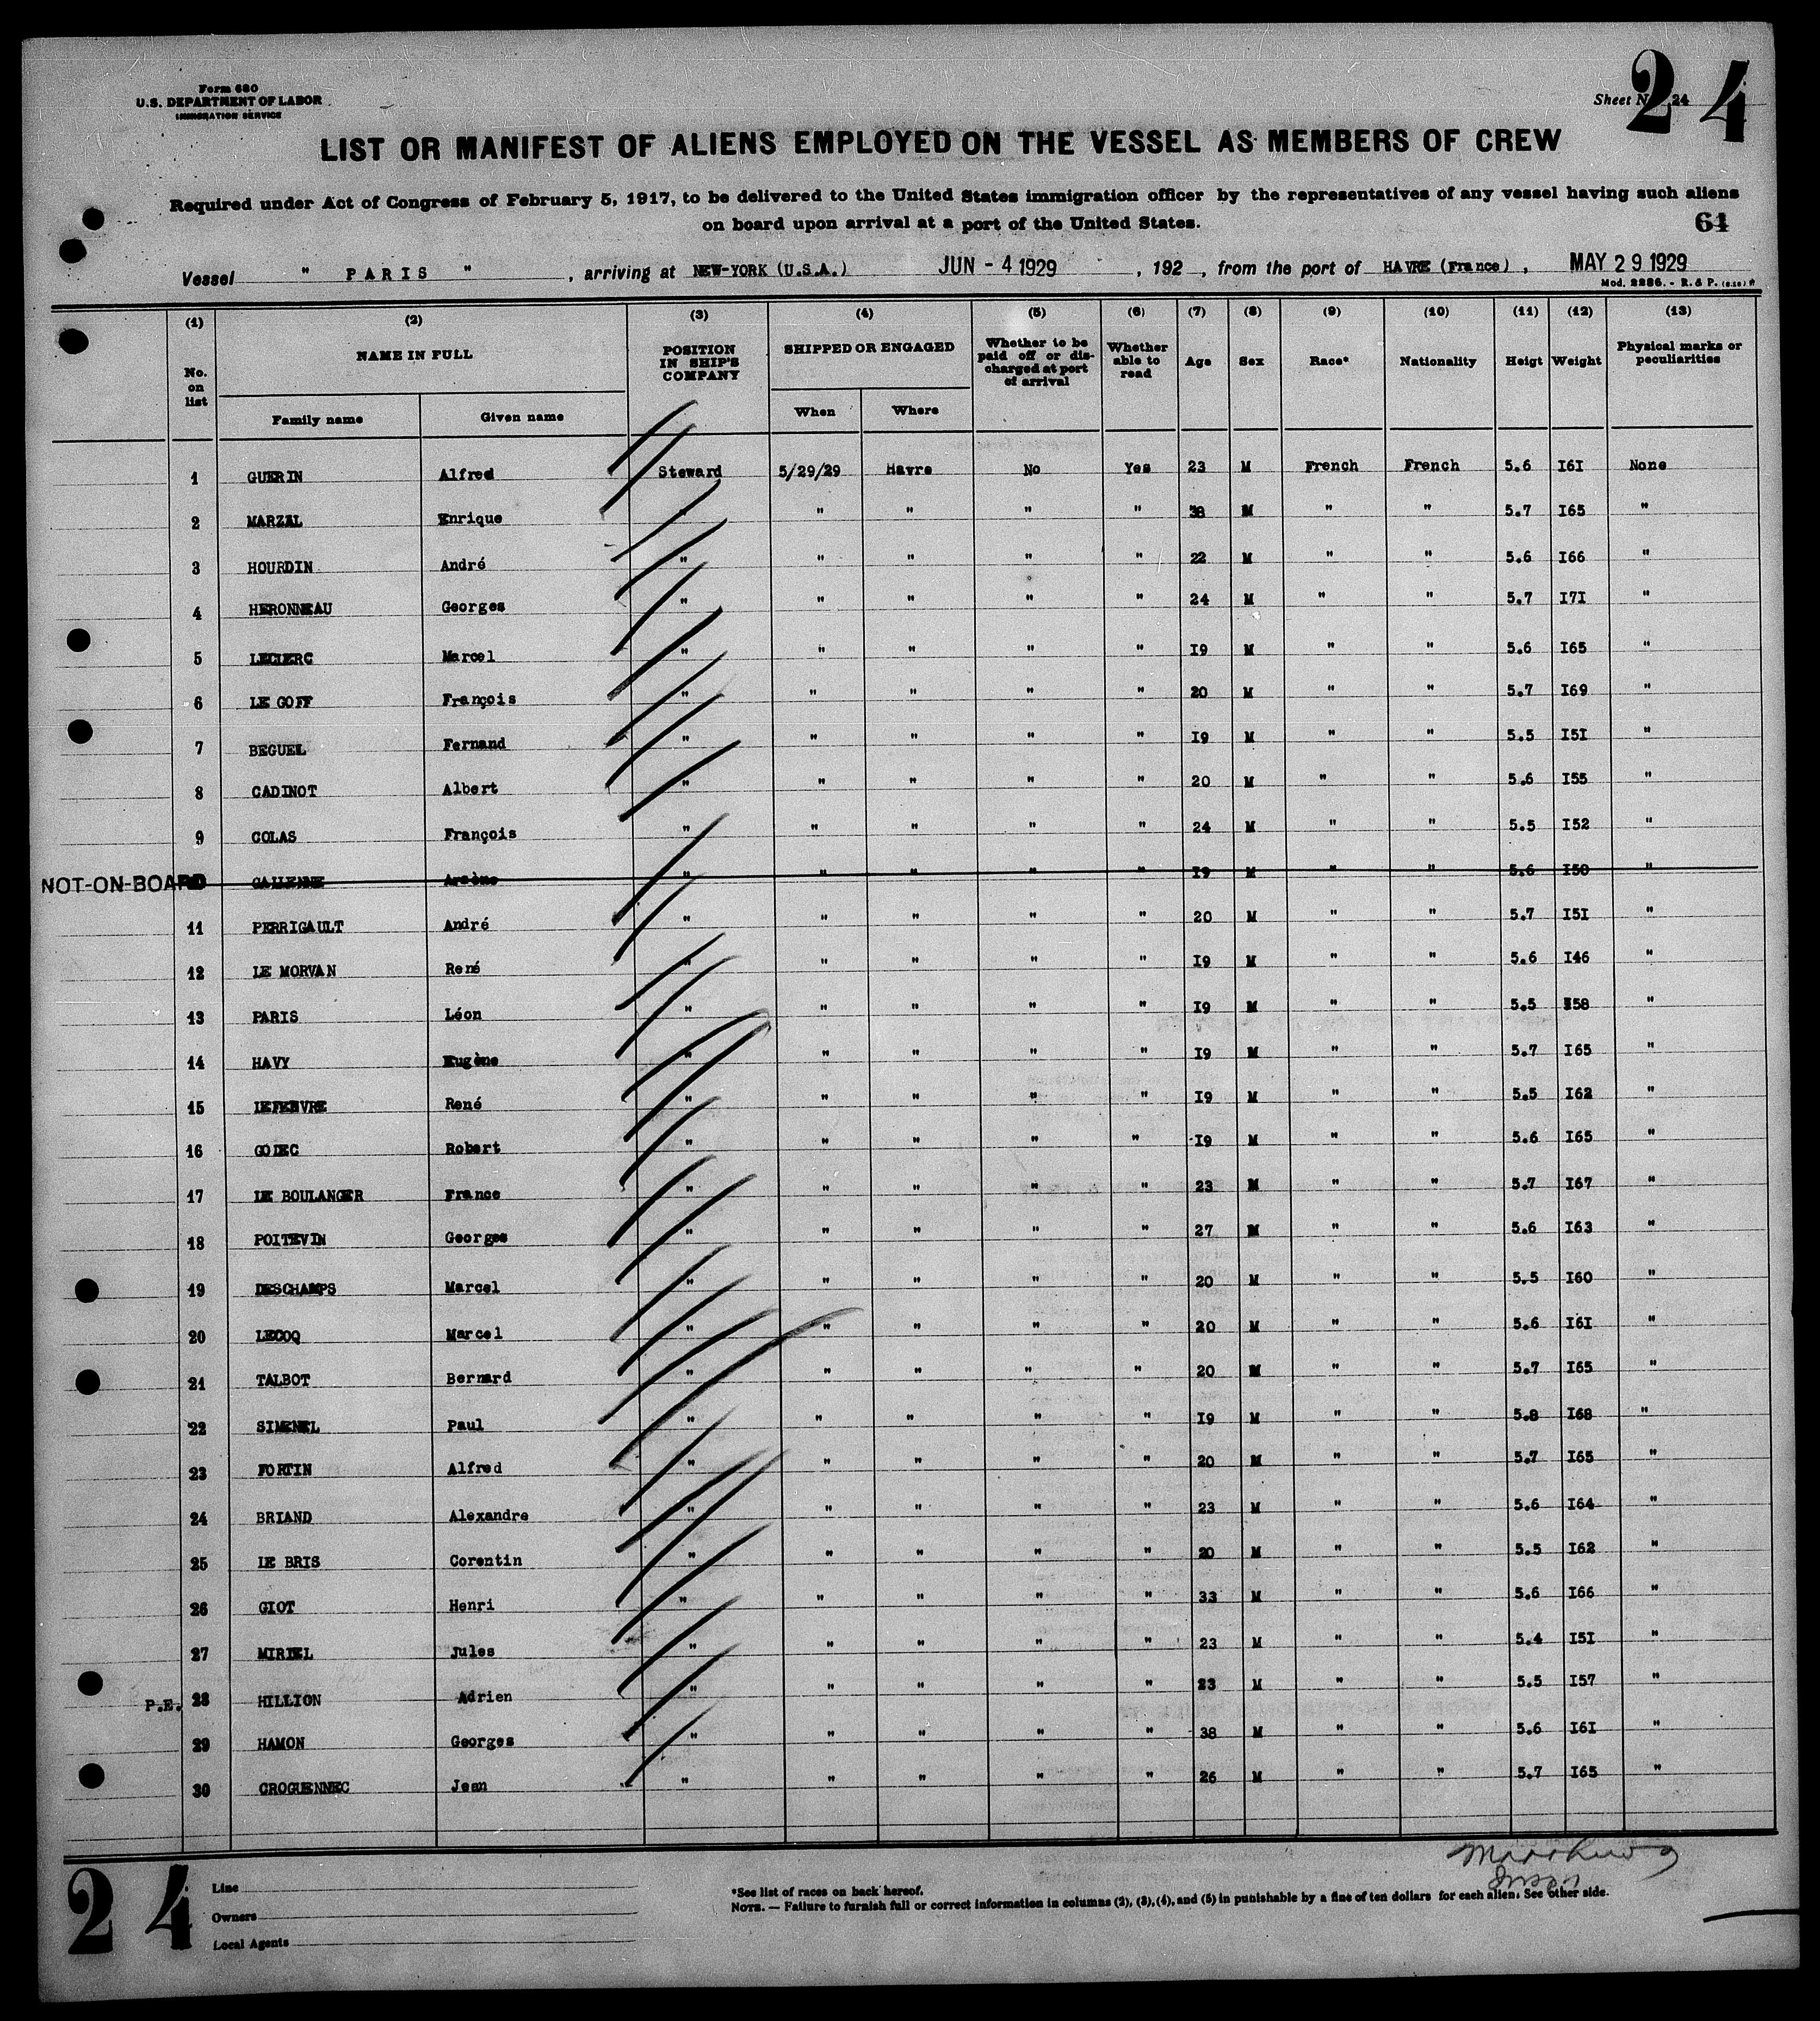 Form 680
U.S. DEPARTMENT OF LABOR
IMMIGRATION SERVICE
Sheet No. 24
24
LIST OR MANIFEST OF ALIENS EMPLOYED ON THE VESSEL AS MEMBERS OF CREW
Required under Act of Congress of February 5, 1917, to be delivered to the United States immigration officer by the representatives of any vessel having such aliens
on board upon arrival at a port of the United States.
61
Vessel " PARIS " , arriving at NEW-YORK (U.S.A.) JUN - 4 1929 , 192 , from the port of HAVRE (France) , MAY 29 1929
Mod. 2286. - R. & P.
(1) (2) (3) (4) (5) (6) (7) (8) (9) (10) (11) (12) (13)
No. on list NAME IN FULL POSITION IN SHIP'S COMPANY SHIPPED OR ENGAGED Whether to be paid off or discharged at port of arrival Whether able to read Age Sex Race* Nationality Heigt Weight Physical marks or peculiarities
Family name Given name When Where
1 GUERIN Alfred Steward 5/29/29 Havre No Yes 23 M French French 5.6 I6I None
2 MARZAL Enrique " " " " " 38 M " " 5.7 I65 "
3 HOURDIN André " " " " " 22 M " " 5.6 I66 "
4 HERONNEAU Georges " " " " " 24 M " " 5.7 I7I "
5 LECLERC Marcel " " " " " I9 M " " 5.6 I65 "
6 LE GOFF François " " " " " 20 M " " 5.7 I69 "
7 BEGUEL Fernand " " " " " I9 M " " 5.5 I5I "
8 CADINOT Albert " " " " " 20 M " " 5.6 I55 "
9 COLAS François " " " " " 24 M " " 5.5 I52 "
NOT-ON-BOARD GALIENNE Arsène " " " " " I9 M " " 5.6 I50 "
11 PERRIGAULT André " " " " " 20 M " " 5.7 I5I "
12 LE MORVAN René " " " " " I9 M " " 5.6 I46 "
13 PARIS Léon " " " " " I9 M " " 5.5 I58 "
14 HAVY Eugène " " " " " I9 M " " 5.7 I65 "
15 LEFEBVRE René " " " " " I9 M " " 5.5 I62 "
16 GODEC Robert " " " " " I9 M " " 5.6 I65 "
17 LE BOULANGER France " " " " " 23 M " " 5.7 I67 "
18 POITEVIN Georges " " " " " 27 M " " 5.6 I63 "
19 DESCHAMPS Marcel " " " " " 20 M " " 5.5 I60 "
20 LECOQ Marcel " " " " " 20 M " " 5.6 I6I "
21 TALBOT Bernard " " " " " 20 M " " 5.7 I65 "
22 SIMENEL Paul " " " " " I9 M " " 5.8 I68 "
23 FORTIN Alfred " " " " " 20 M " " 5.7 I65 "
24 BRIAND Alexandre " " " " " 23 M " " 5.6 I64 "
25 LE BRIS Corentin " " " " " 20 M " " 5.5 I62 "
26 GIOT Henri " " " " " 33 M " " 5.6 I66 "
27 MIRIEL Jules " " " " " 23 M " " 5.4 I5I "
P.E. 28 HILLION Adrien " " " " " 23 M " " 5.5 I57 "
29 HAMON Georges " " " " " 38 M " " 5.6 I6I "
30 CROGUENNEC Jean " " " " " 26 M " " 5.7 I65 "
24
Line
Owners
Local Agents
*See list of races on back hereof.
NOTE. — Failure to furnish full or correct information in columns (2), (3), (4), and (5) in punishable by a fine of ten dollars for each alien. See other side.